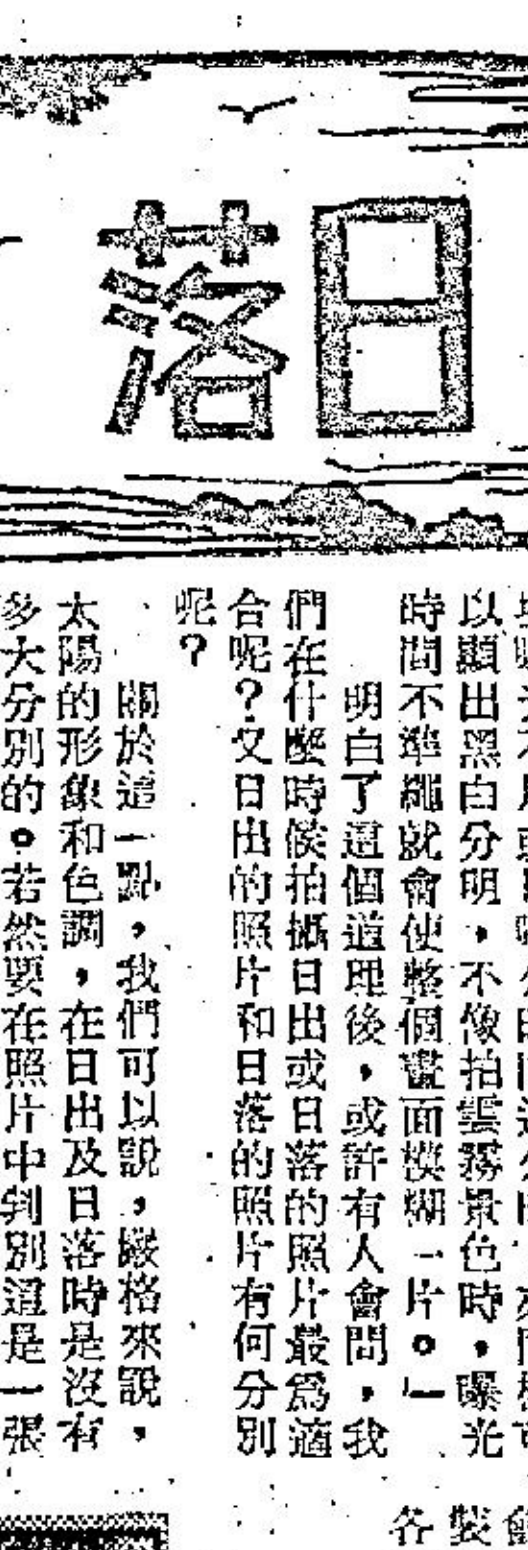 日落
以顯出黑白分明，不像拍雲霧景色時，曝光
時間不準繩就會使整個畫面模糊一片。」
明白了這個道理後，或許有人會問，我
們在什麼時候拍攝日出或日落的照片最爲適
合呢？又日出的照片和日落的照片有何分別
呢？
關於這一點，我們可以說，嚴格來說，
太陽的形象和色調，在日出及日落時是沒有
多大分別的。若然要在照片中判別這是一張
裝
各